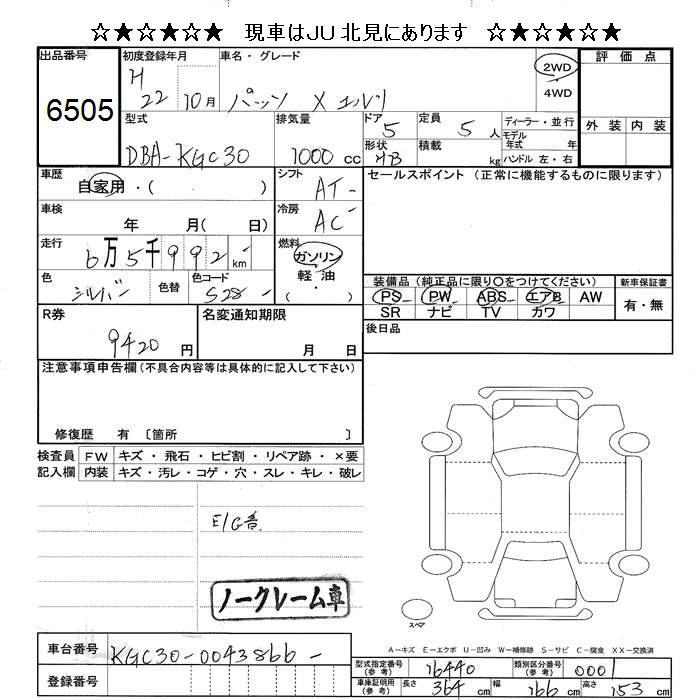 ☆★☆★☆★ 現車はJU北見にあります ☆★☆★☆★
出品番号 初度登録年月 車名・グレード 評価点
6505 H 22 10月 パッソ X 2WD
4WD
型式 排気量 ドア 定員 ディーラー・並行 外装 内装
DBA-KGC30 1000cc 5 5人 モデル年式 年
形状 HB 積載 kg ハンドル 左・右
車歴 シフト セールスポイント(正常に機能するものに限ります)
自家用・( ) AT-
車検 冷房
年 月( 日) AC-
走行 燃料
6万5千992km ガソリン・軽油・( )
色 色替 色コード 装備品(純正品に限り〇をつけてください) 新車保証書
シルバー S28- PS PW ABS エアB AW 有・無
SR ナビ TV カワ
R券 名変通知期限 後日品
9420円 月 日
注意事項申告欄(不具合内容等は具体的に記入して下さい)
修復歴 有〔箇所 〕
検査員 FW キズ・飛石・ヒビ割・リペア跡・×要
記入欄 内装 キズ・汚レ・コゲ・穴・スレ・キレ・破レ
E/G音
ノークレーム車
スペア
A-キズ E-エクボ U-凹み W-補修跡 S-サビ C-腐食 XX-交換済
車台番号 KGC30-0043866-
型式指定番号(参考) 16440 類別区分番号(参考) 0001
登録番号 車庫証明用(参考) 長さ 364cm 幅 166cm 高さ 153cm